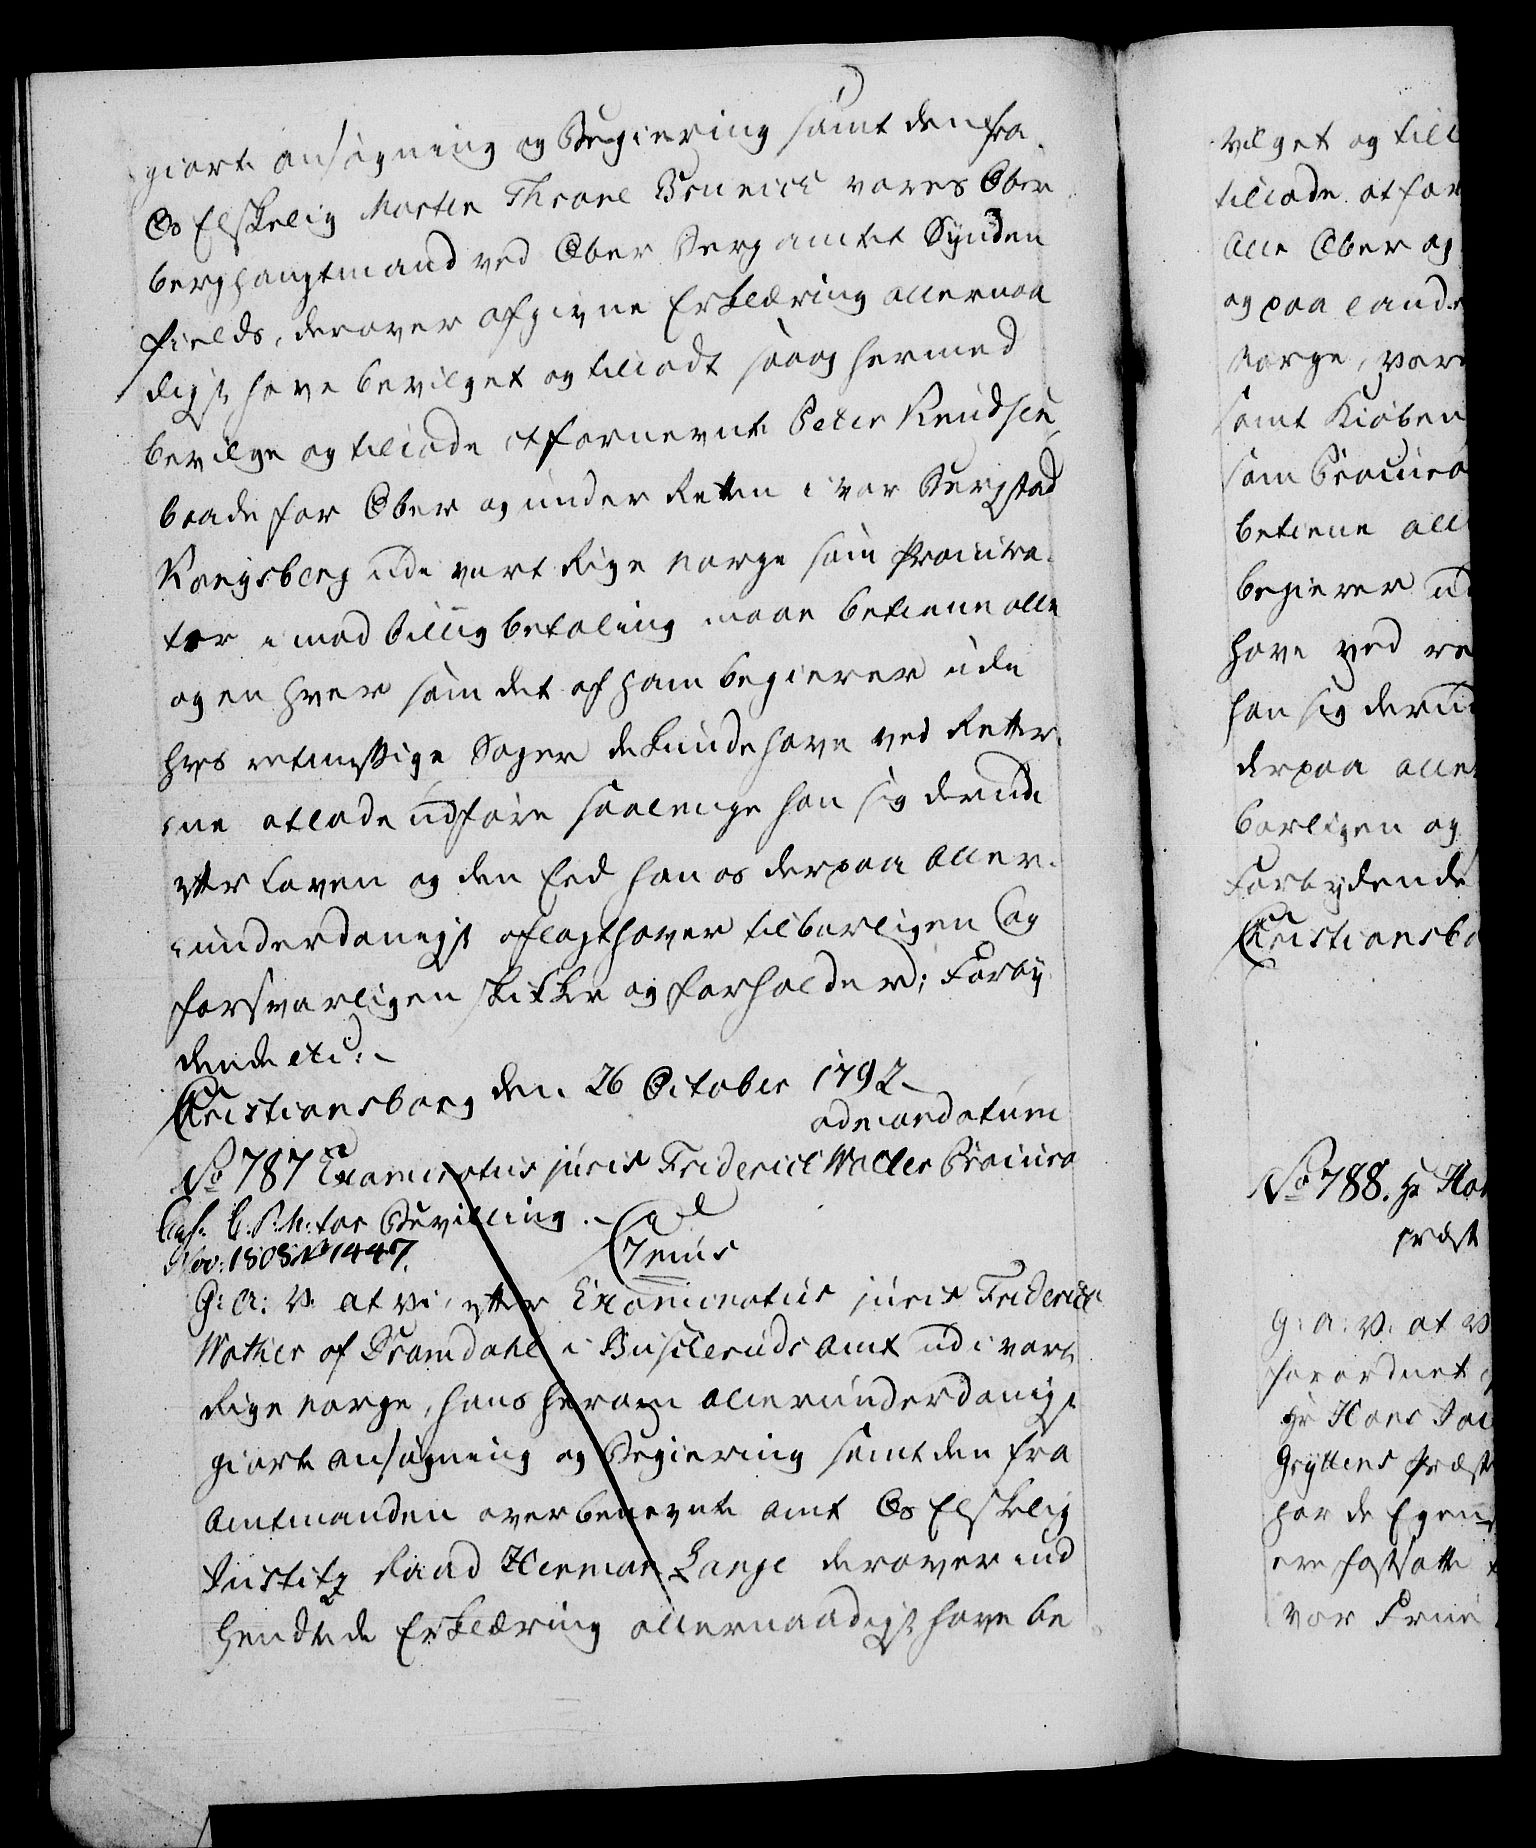 giorte ansøgning og Begiering samt den fra
Os Elskelig Morten Thrane Brünich vores Ober
berghauptmand ved Ober Berg amtet Synden
fields, derover afgivne Erklæring allernaa
digst have bevilget og tilladt saa og hermed
bevilge og tillade at fornevnte Peter Knudsen
baade for Ober og under Retten i vor Bergstad
Kongsberg udi vort Rige Norge som Procura
tor imod billig betaling maae betiene alle
og en hver som det af ham begierer udi
hvis retmessige Sager de kunde have ved Retter
ne at lade udføre saalenge han sig derudi
efter Loven og den Eed han os derpaa aller
underdanigst aflagt haver tilbørligen og
forsvarligen skikker og forholder; Forby
dende etc: -
Christiansborg den 26 October 1792
ad mandatum
No 787 Examinatus juris Friderich Wolher Procura
tor Bevilling.
Nov: 1808 No 1447.
C 7mus
G: A: V. at vi, efter Examinatus juris Friderich
Wolher af Dramdahl i Buscheruds Amt udi vort
Rige Norge, hans herom allerunderdanigst
giorte ansøgning og Begiering samt den fra
Amtmanden over benevnte Amt Os Elskelig
Justitz Raad Herman Lange derover ind
hendtede Erklæring allernaadigst have be
vilget og till
tillade at for
Alle Ober og
og paa Lande
Norge, vor
samt Kiøben
som Procura
betiene alle
begierer ud
have ved re
han sig derud
derpaa aller
børligen og
Forbydende
Christiansbo
No 788. Hr Han
præst
G: A: V: at V
forordnet
Hr Hans Jac
Gryttens Præst
har de Egen
ere fastsatte
vor Frue